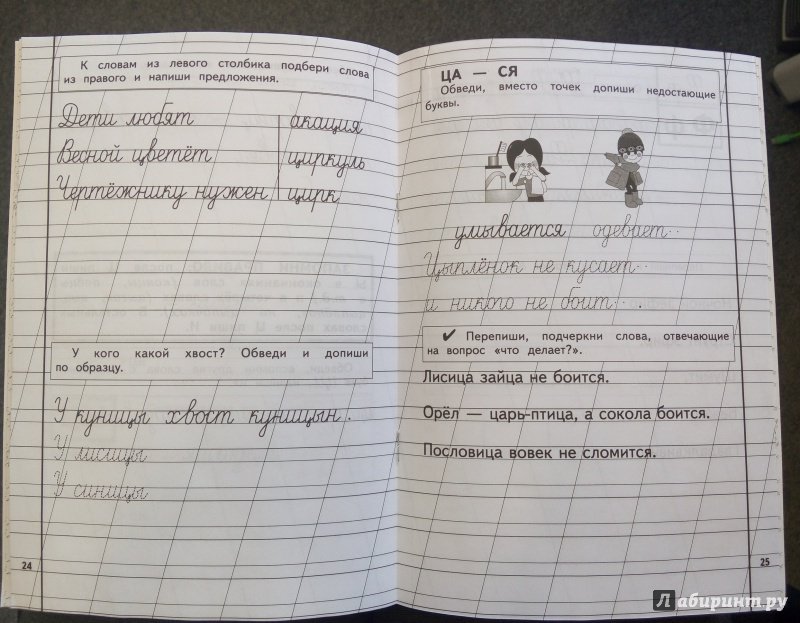 К словам из левого столбика подбери слова
из правого и напиши предложения.
Дети любят акация
Весной цветёт циркуль
Чертёжнику нужен цирк
У кого какой хвост? Обведи и допиши
по образцу.
У куницы хвост куницын.
У лисицы
У синицы
24
ЦА — СЯ
Обведи, вместо точек допиши недостающие
буквы.
умывается одевает..
Цыплёнок не кусает..
и никого не боит...
✔ Перепиши, подчеркни слова, отвечающие
на вопрос «что делает?».
Лисица зайца не боится.
Орёл — царь-птица, а сокола боится.
Пословица вовек не сломится.
25
Лабиринт.ру